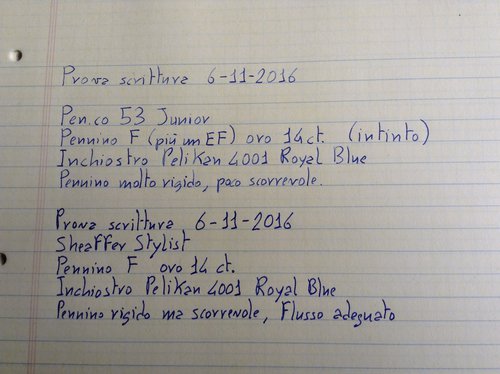 Prova scrittura 6-11-2016
Pen.co 53 Junior
Pennino F (più un EF) oro 14ct. (intinto)
Inchiostro Pelikan 4001 Royal Blue
Pennino molto rigido, poco scorrevole.
Prova scrittura 6-11-2016
Sheaffer Stylist
Pennino F oro 14 ct.
Inchiostro Pelikan 4001 Royal Blue
Pennino rigido ma scorrevole, Flusso adeguato